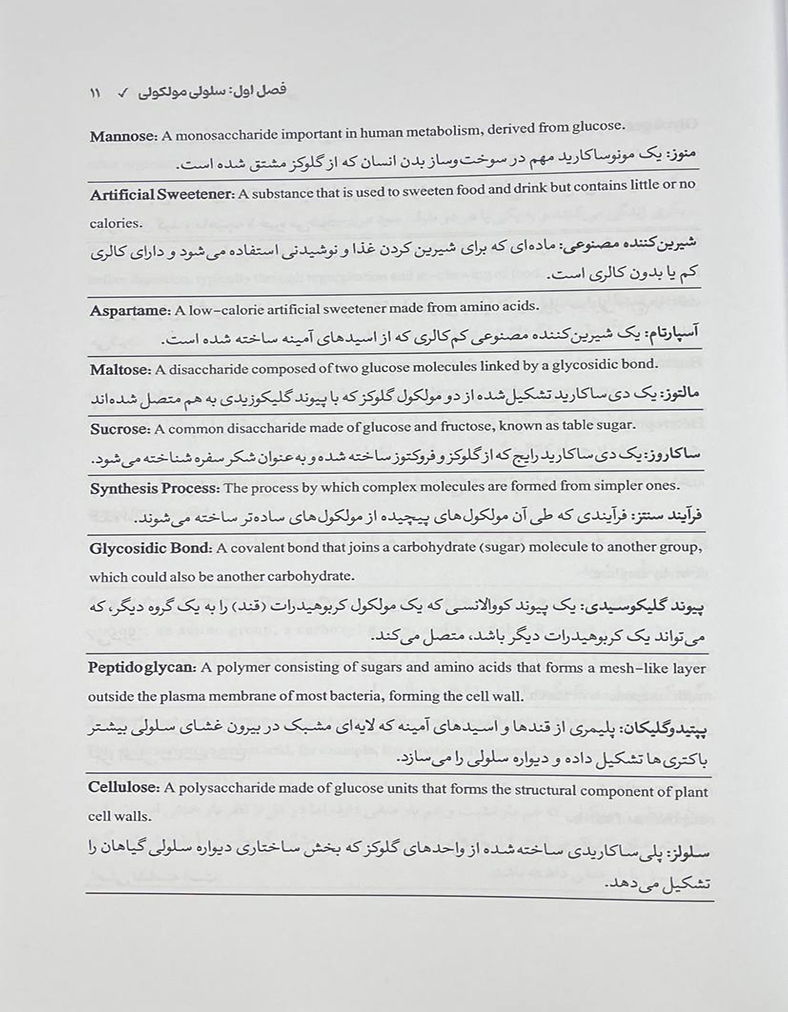 فصل اول: سلولی مولکولی ✓ ۱۱
Mannose: A monosaccharide important in human metabolism, derived from glucose.
منوز: یک مونوساکارید مهم در سوخت‌وساز بدن انسان که از گلوکز مشتق شده است.
Artificial Sweetener: A substance that is used to sweeten food and drink but contains little or no
calories.
شیرین‌کننده مصنوعی: ماده‌ای که برای شیرین کردن غذا و نوشیدنی استفاده می‌شود و دارای کالری
کم یا بدون کالری است.
Aspartame: A low-calorie artificial sweetener made from amino acids.
آسپارتام: یک شیرین‌کننده مصنوعی کم‌کالری که از اسیدهای آمینه ساخته شده است.
Maltose: A disaccharide composed of two glucose molecules linked by a glycosidic bond.
مالتوز: یک دی‌ساکارید تشکیل‌شده از دو مولکول گلوکز که با پیوند گلیکوزیدی به هم متصل شده‌اند
Sucrose: A common disaccharide made of glucose and fructose, known as table sugar.
ساکاروز: یک دی‌ساکارید رایج که از گلوکز و فروکتوز ساخته شده و به عنوان شکر سفره شناخته می‌شود.
Synthesis Process: The process by which complex molecules are formed from simpler ones.
فرآیند سنتز: فرآیندی که طی آن مولکول‌های پیچیده از مولکول‌های ساده‌تر ساخته می‌شوند.
Glycosidic Bond: A covalent bond that joins a carbohydrate (sugar) molecule to another group,
which could also be another carbohydrate.
پیوند گلیکوسیدی: یک پیوند کووالانسی که یک مولکول کربوهیدرات (قند) را به یک گروه دیگر، که
می‌تواند یک کربوهیدرات دیگر باشد، متصل می‌کند.
Peptidoglycan: A polymer consisting of sugars and amino acids that forms a mesh-like layer
outside the plasma membrane of most bacteria, forming the cell wall.
پپتیدوگلیکان: پلیمری از قندها و اسیدهای آمینه که لایه‌ای مشبک در بیرون غشای سلولی بیشتر
باکتری‌ها تشکیل داده و دیواره سلولی را می‌سازد.
Cellulose: A polysaccharide made of glucose units that forms the structural component of plant
cell walls.
سلولز: پلی‌ساکاریدی ساخته‌شده از واحدهای گلوکز که بخش ساختاری دیواره سلولی گیاهان را
تشکیل می‌دهد.